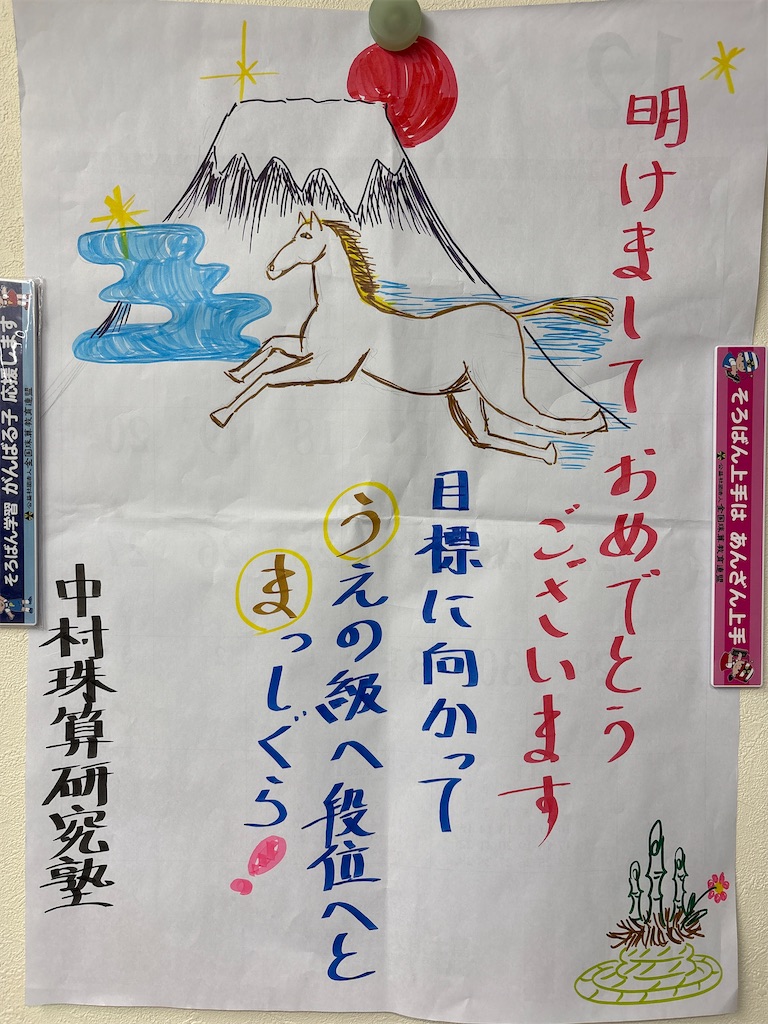 明けまして おめでとう
ございます
目標に向かって
うえの級へ段位へと
まっしぐら!
中村珠算研究塾
そろばん上手は あんざん上手
公益社団法人 全国珠算教育連盟
そろばん学習 がんばる子 応援します
12